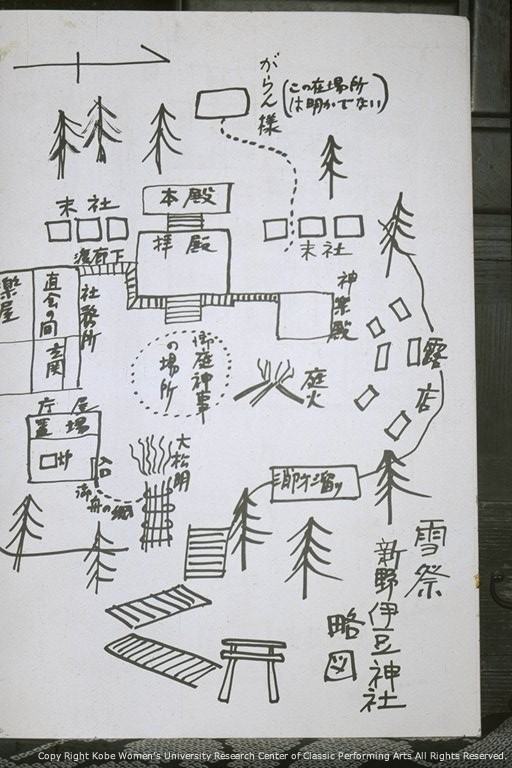 がらん様
(この在場所
は明かでない)
本殿
末社
拝殿
末社
渡廊下
神楽殿
楽屋
直会の間
社務所
玄関
御庭神事
の場所
庭火
露店
庁屋
置場
入口
御舟の綱
大松明
消防溜り
雪祭
新野伊豆神社
略図
Copy Right Kobe Women's University Research Center of Classic Performing Arts All Rights Reserved.